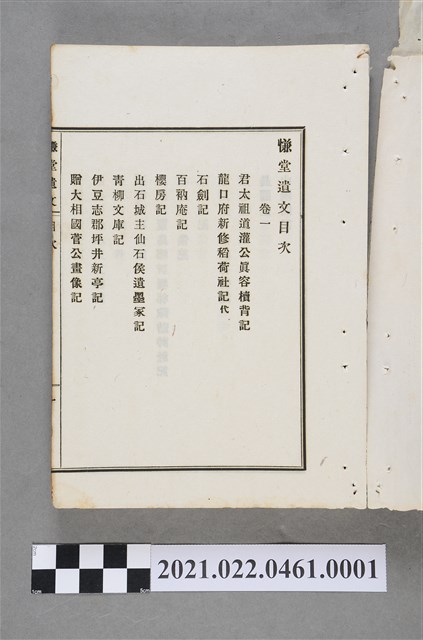 慊堂遺文目次
卷一
君太祖道灌公眞容櫝背記
龍口府新修稻荷社記代
石劍記
百衲庵記
樓房記
出石城主仙石侯遺墨冢記
靑柳文庫記
伊豆志郡坪井新亭記
贈大相國菅公畫像記
2021.022.0461.0001